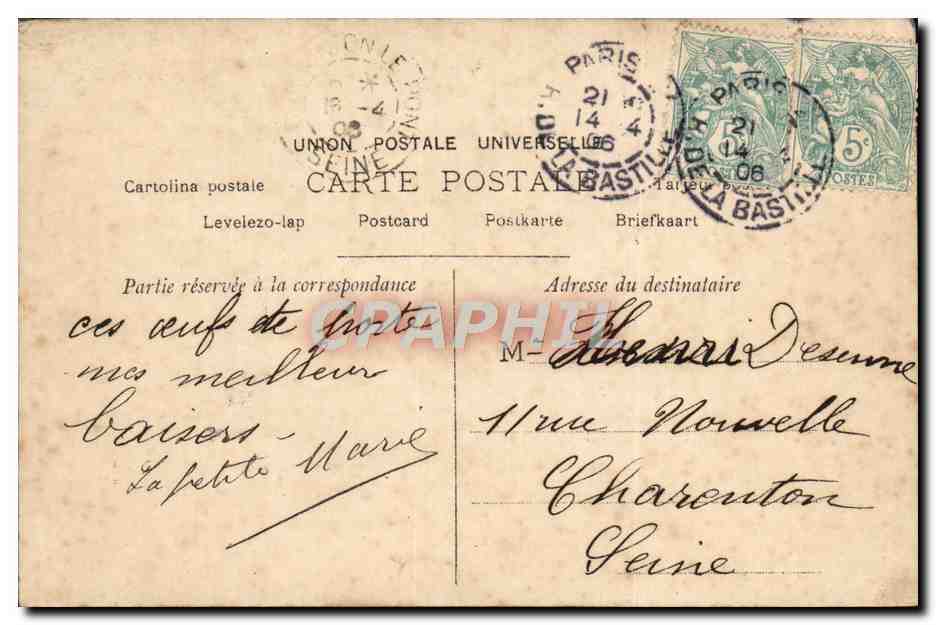 PARIS
21
14 4
06
R. DE LA BASTILLE
PARIS
21
14 4
06
R. DE LA BASTILLE
5c
5c
POSTES
SEINE
UNION POSTALE UNIVERSELLE
Cartolina postale CARTE POSTALE
Levelezo-lap Postcard Postkarte Briefkaart
Partie réservée à la correspondance
ces œufs de
mes meilleur
baisers
La petite Marie
Adresse du destinataire
M Henri Desenne
11 rue Nouvelle
Charenton
Seine
CPAPHIL